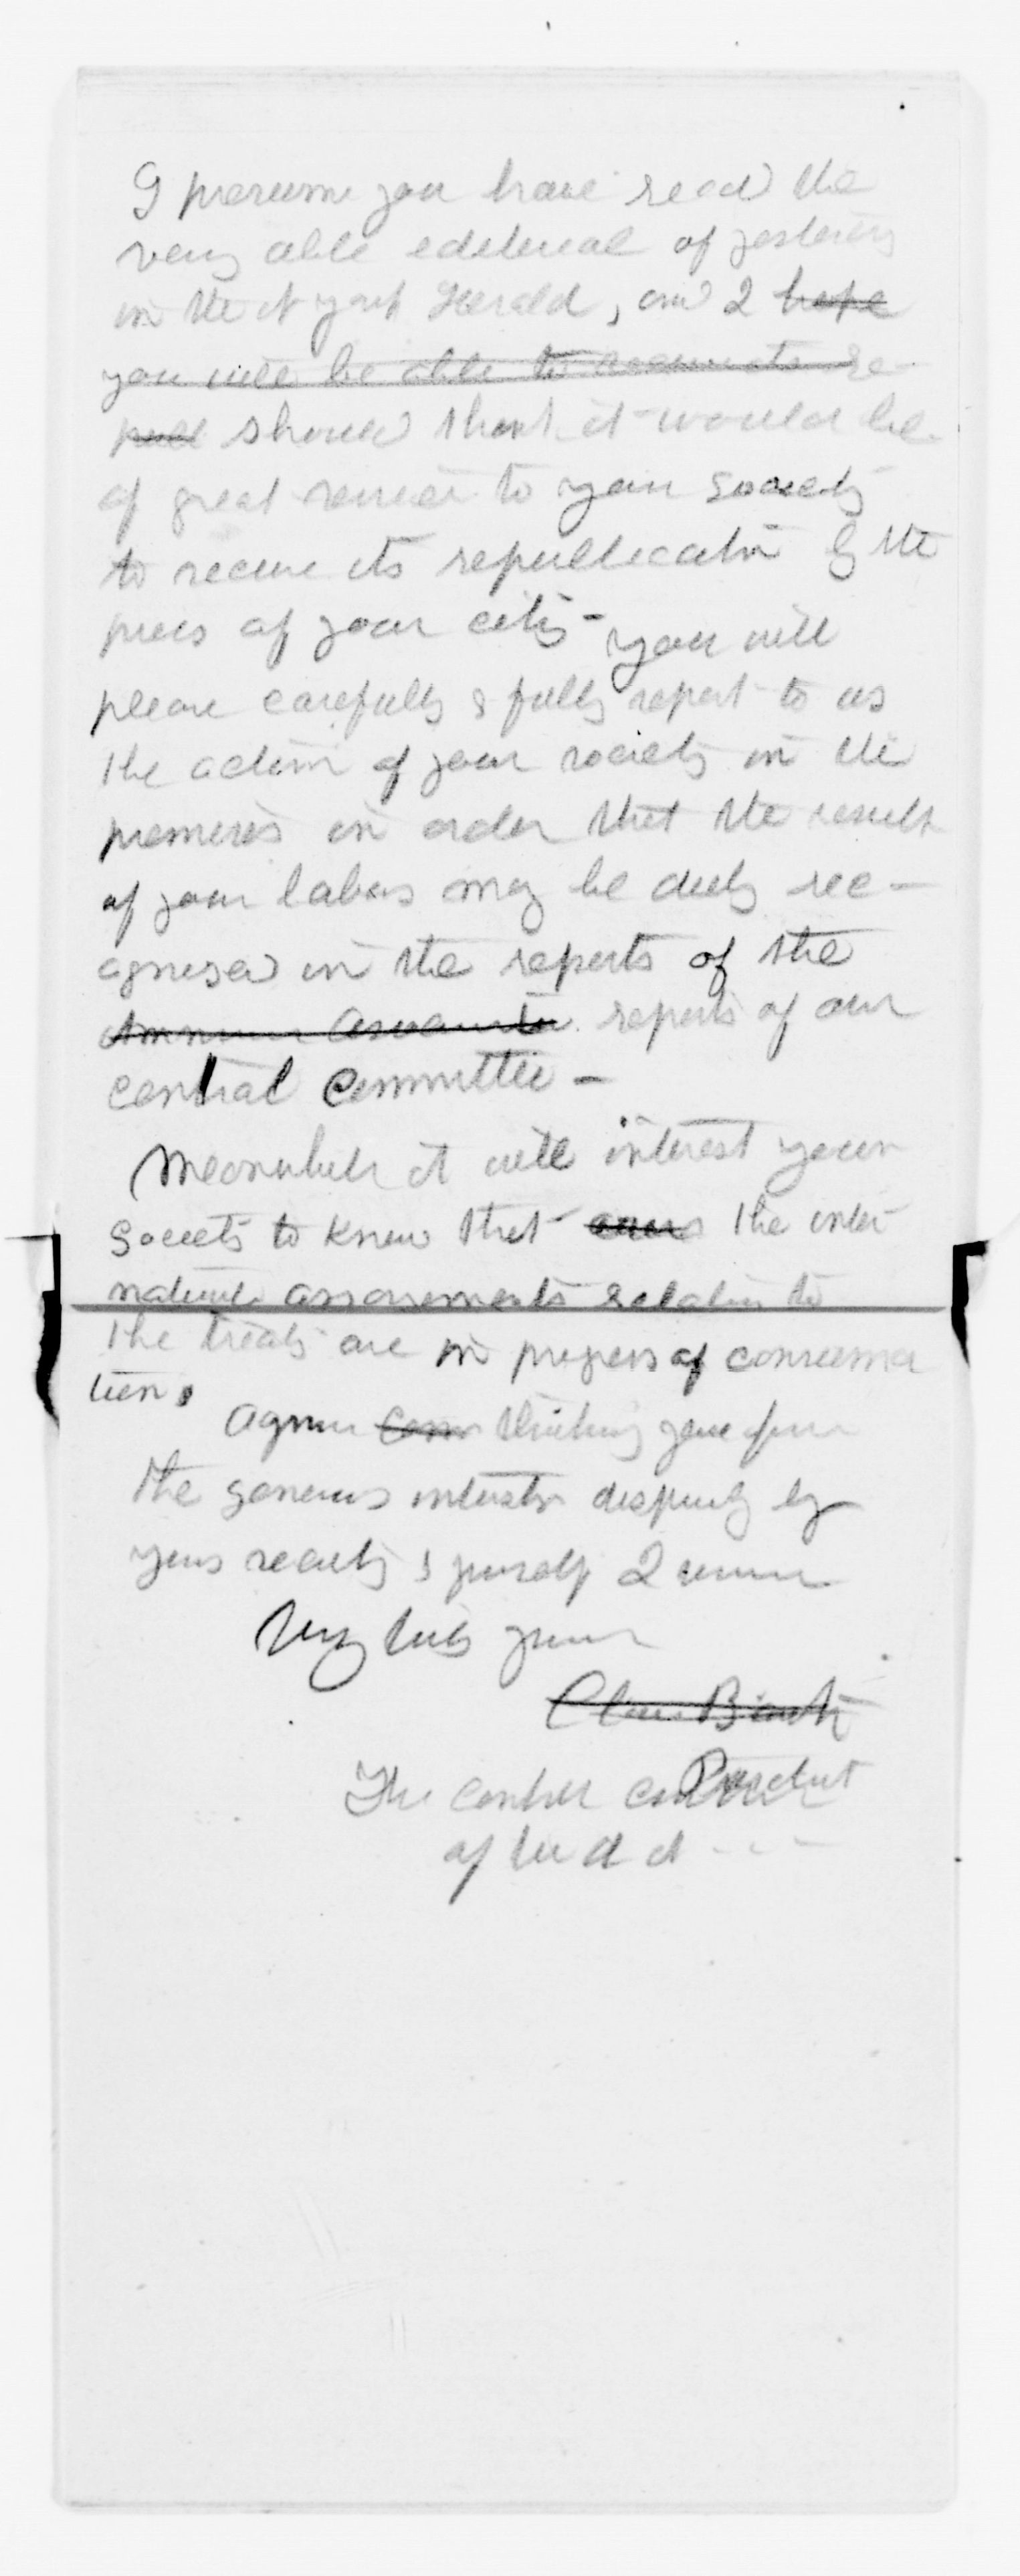 I presume you have read the
very able editorial of yesterday
in the N York Herald, and I hope
you will be able to re-
should think it would be
of great service to your Society
to secure its republication by the
press of your city - you will
please carefully & fully report to us
the action of your society in the
premises in order that the result
of your labors may be duly rec-
ognised in the reports of the
reports of our
central committee -
Meanwhile it will interest your
Society to know that the inter
national arrangements relative to
the treaty are in progress of consumma
tion.
Again thanking you for
the generous interest displayed by
your society & yourself I remain
Very truly yours
Clara Barton
The Central President
of the